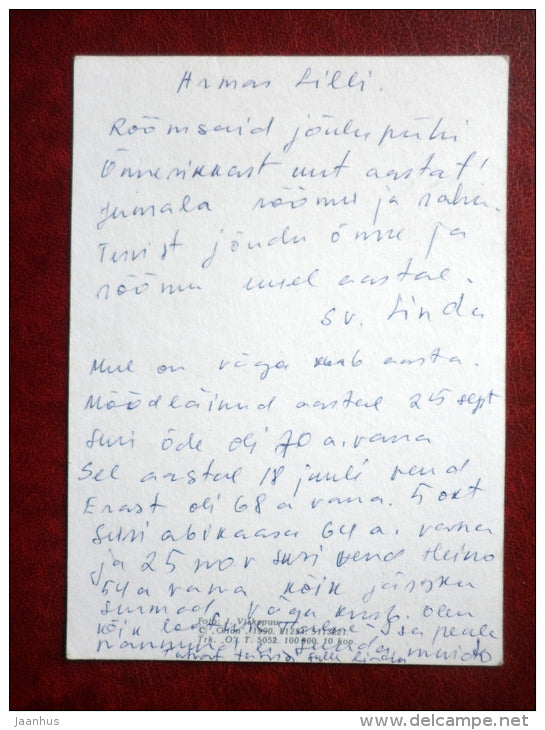 Armas Lilli.
Rõõmsaid jõulupühi
Õnnerikkast uut aastat!
Jumala rõõmu ja rahu.
Tervist jõudu õnne ja
rõõmu uuel aastal.
sv. Linda
Mul on väga kurb aasta.
Möödläinud aastal 25 sept
suri õde oli 70 a. vana
Sel aastal 18 juuli vend
Erast oli 68 a vana. 5 okt
suri abikaasa 64 a. vana
ja 25 nov suri vend Heino
54 a vana kõik järgku
surmad. Väga kurb. olen
kõik Isa peale
pannud
Foto: J.
© Orion 1990.
Trk. O3 T. 5052. 100 000. 10 kop.
jaanhus
www.delcampe.net